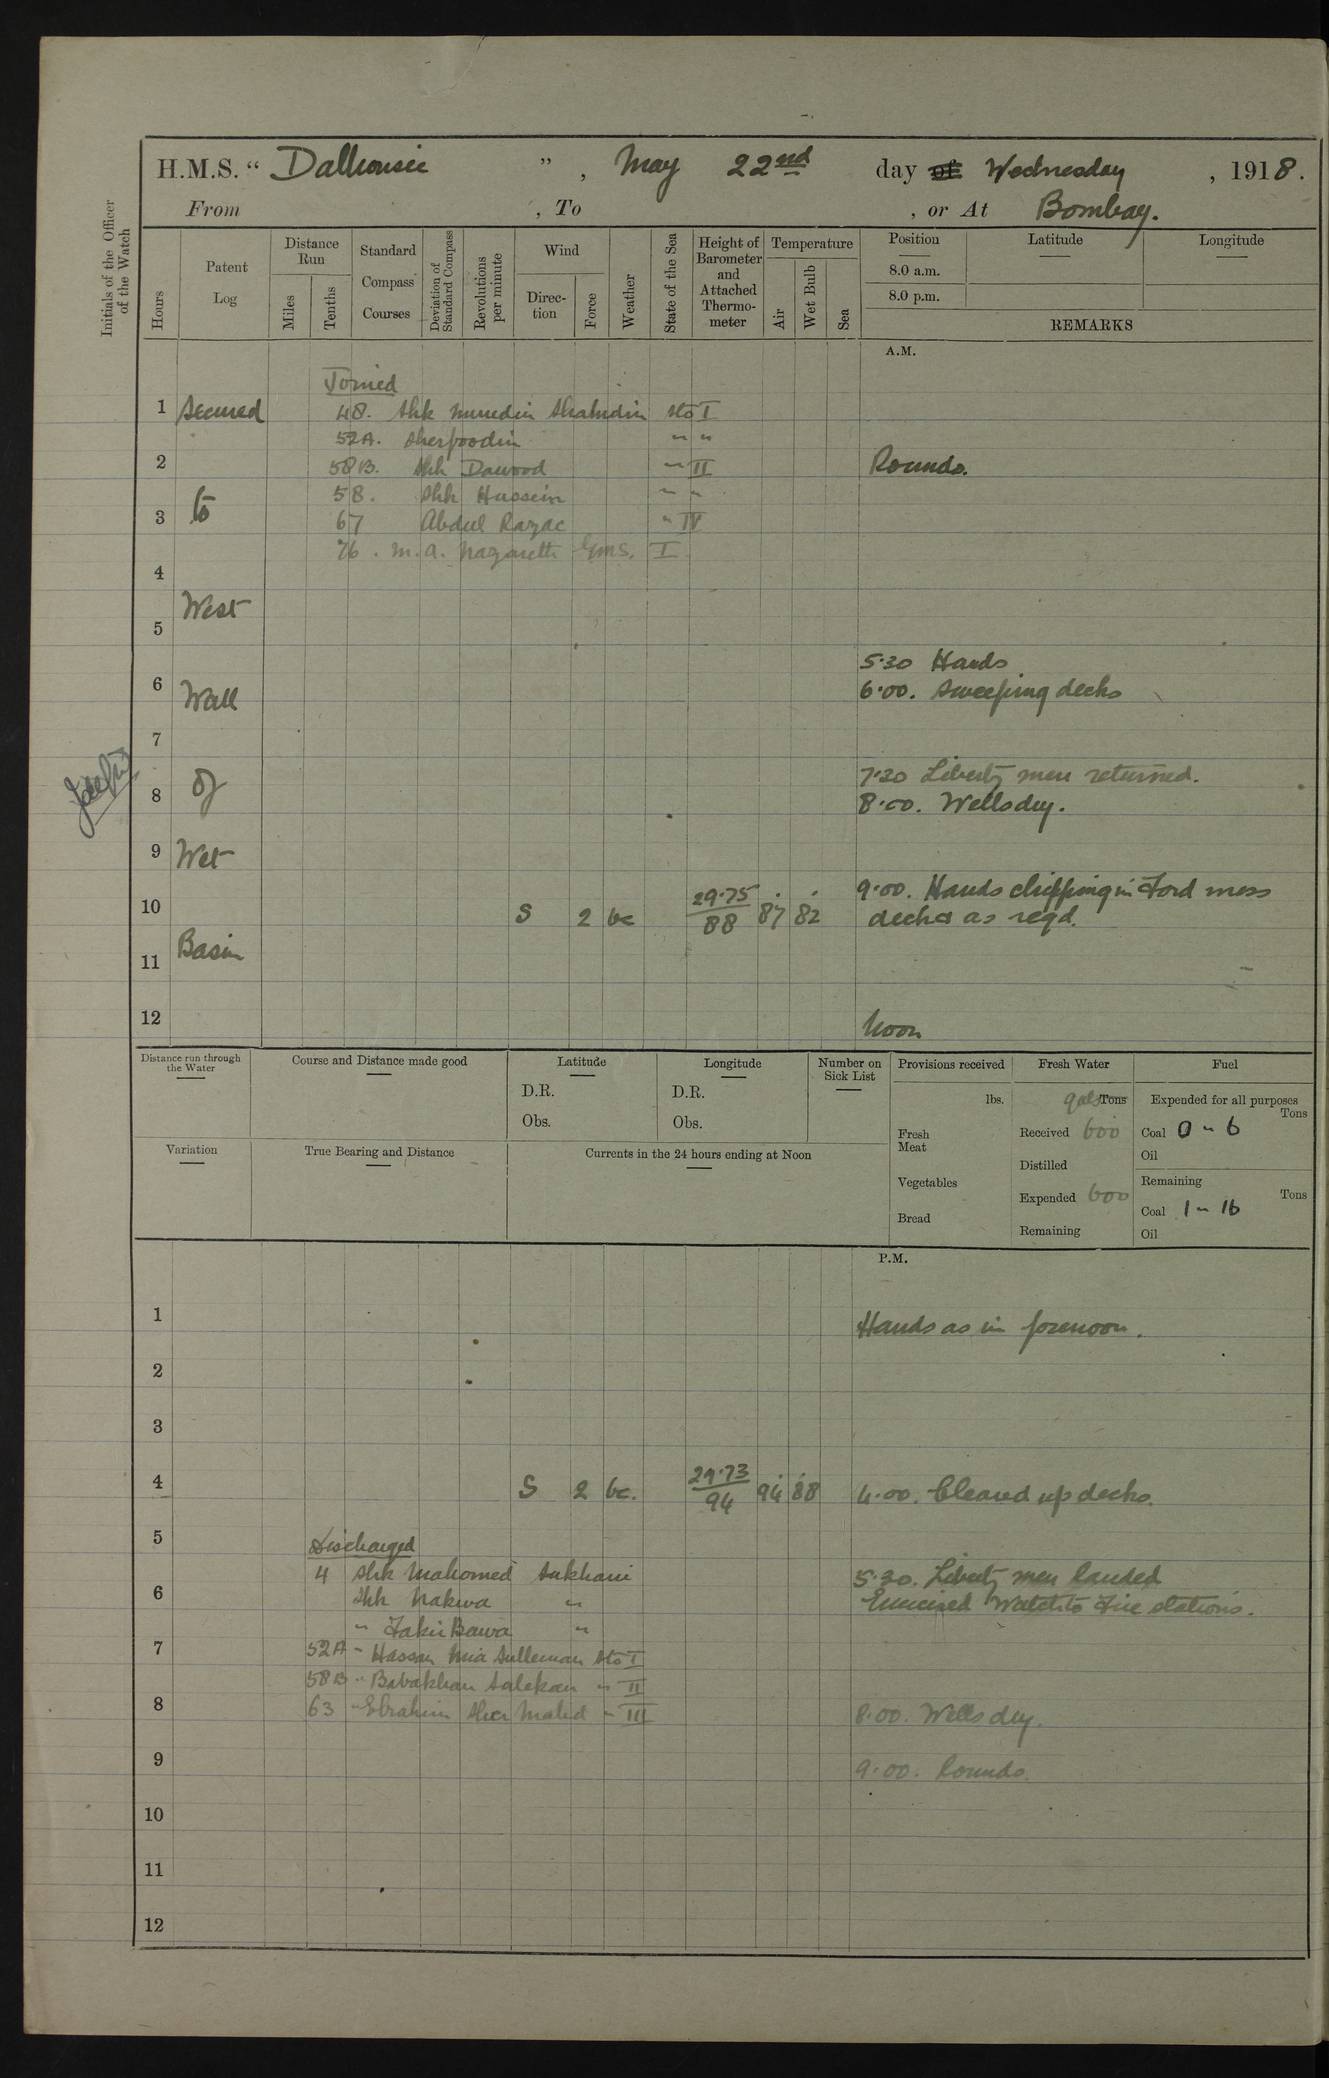 H.M.S. “ Dalhousie ”, May 22nd day of Wednesday, 1918.
From , To , or At Bombay.
Initials of the Officer of the Watch
Hours
Patent Log
Distance Run
Miles
Tenths
Standard Compass Courses
Deviation of Standard Compass
Revolutions per minute
Wind
Direction
Force
Weather
State of the Sea
Height of Barometer and Attached Thermometer
Temperature
Air
Wet Bulb
Sea
Position Latitude Longitude
8.0 a.m.
8.0 p.m.
REMARKS
A.M.
Joined
1 Secured 48. Shk Shk Shahudin Sto I
52A. Sherfoodin " "
2 58B. Shk Dawood " II Rounds.
58. Shk Hussein " "
3 to 67 Abdul Razac " IV
76. M.A. Nazareth Gms. I
4
West
5
5.30 Hands
6 Wall 6.00. Sweeping decks
7
7.30 Liberty men returned.
8 of 8.00. Wells dry.
9 Wet
9.00. Hands chipping in Ford mess
10 S 2 bc 29.75 88 87 82 decks as reqd.
11 Basin
12 Noon
Distance run through the Water
Course and Distance made good
Latitude
D.R.
Obs.
Longitude
D.R.
Obs.
Number on Sick List
Provisions received
lbs.
Fresh Meat
Vegetables
Bread
Fresh Water
gals Tons
Received 600
Distilled
Expended 600
Remaining
Fuel
Expended for all purposes
Tons
Coal 0 - 6
Oil
Remaining
Tons
Coal 1 - 16
Oil
Variation
True Bearing and Distance
Currents in the 24 hours ending at Noon
P.M.
1 Hands as in forenoon.
2
3
4 S 2 bc. 29.73 94 94 88 4.00. Cleared up decks.
5 Discharged
4 Shk Mahomed Sukhani 5.30. Liberty men landed
6 Shk Nakwa " Exercised Watch to Fire stations.
" Fakir Bawa "
7 52A " Hassan Mia Sulleman Sto I
58B " Babakhan Salekan " II
8 63 " Ebrahim Sher Mahd " III 8.00. Wells dry.
9 9.00. Rounds.
10
11
12